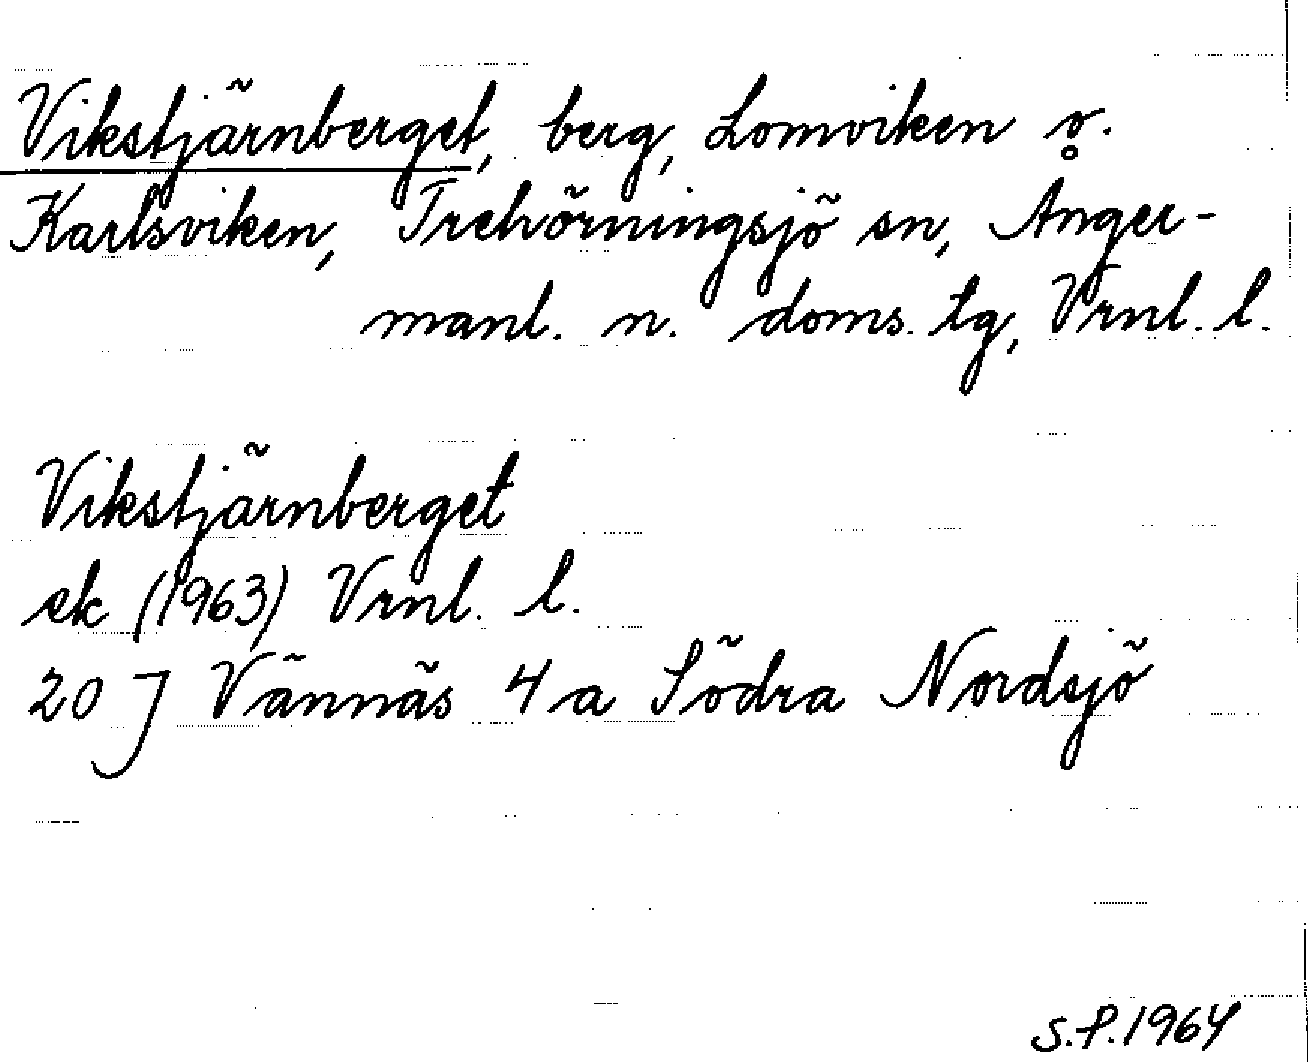 Vikstjärnberget, berg, Lomviken o.
Karlsviken, Trehörningsjö sn, Ånger-
manl. n. doms. tg, Vrnl. l.
Vikstjärnberget
ek (1963) Vrnl. l.
20 J Vännäs 4 a Södra Nordsjö
S.P. 1964